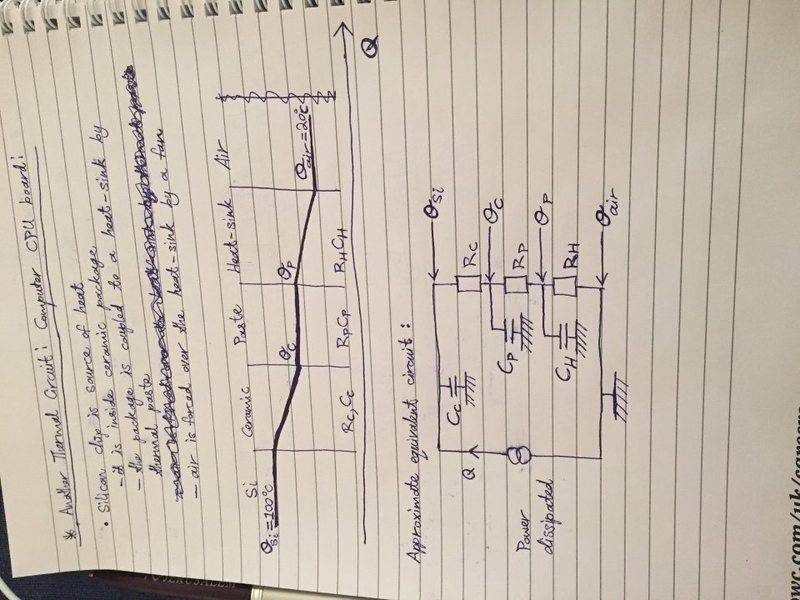 * Another Thermal Circuit: Computer CPU board:
• Silicon chip is source of heat
- it is inside ceramic package
- the package is coupled to a heat-sink by
thermal paste
- air is forced over the heat-sink by a fan
Si
Ceramic
Paste
Heat-sink
Air
θsi=100°C
θc
θp
θair=20°C
Rc,Cc
RpCp
RHCH
Q
Approximate equivalent circuit:
θsi
Cc
Rc
Q
θc
Cp
Rp
Power
dissipated
θp
CH
RH
θair
JERUSALEM